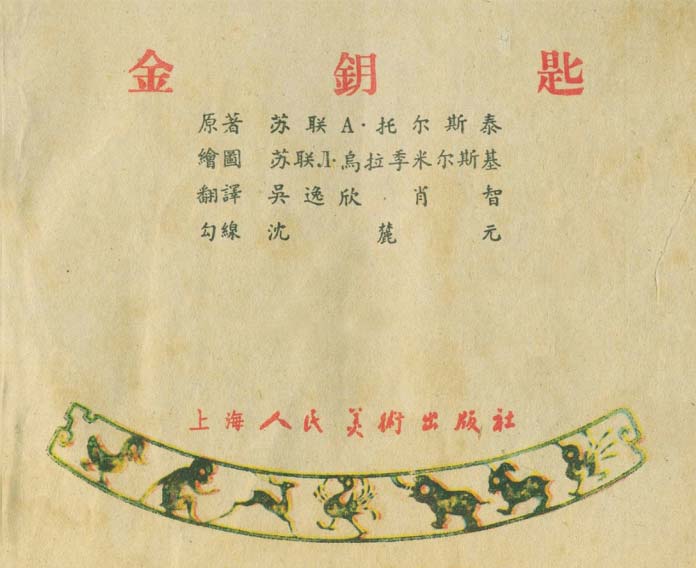 金鑰匙
原著 苏联A·托尔斯泰
繪圖 苏联Л·烏拉季米尔斯基
翻譯 吳逸欣·肖智
勾線 沈麓元
上海人民美術出版社